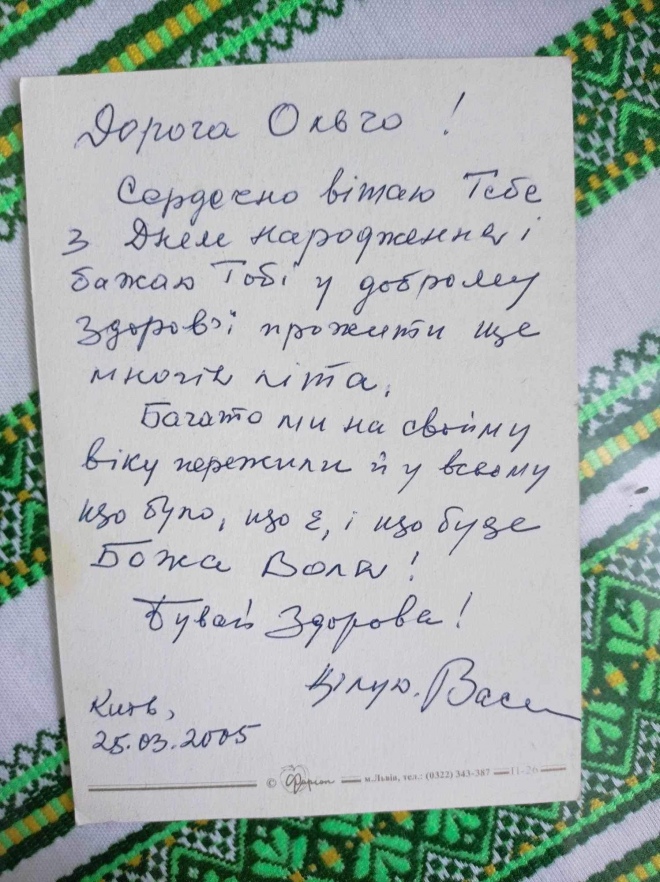 Дорога Ольго!
Сердечно вітаю Тебе
з Днем народження і
бажаю Тобі у доброму
здоров'ї прожити ще
многії літа.
Багато ми на своїму
віку пережили й у всьому
що було, що є, і що буде
Божа Воля!
Бувай Здорова!
Цілую. Васи
Київ,
25.03.2005
© Фаріон м.Львів, тел.: (0322) 343-387 П-26